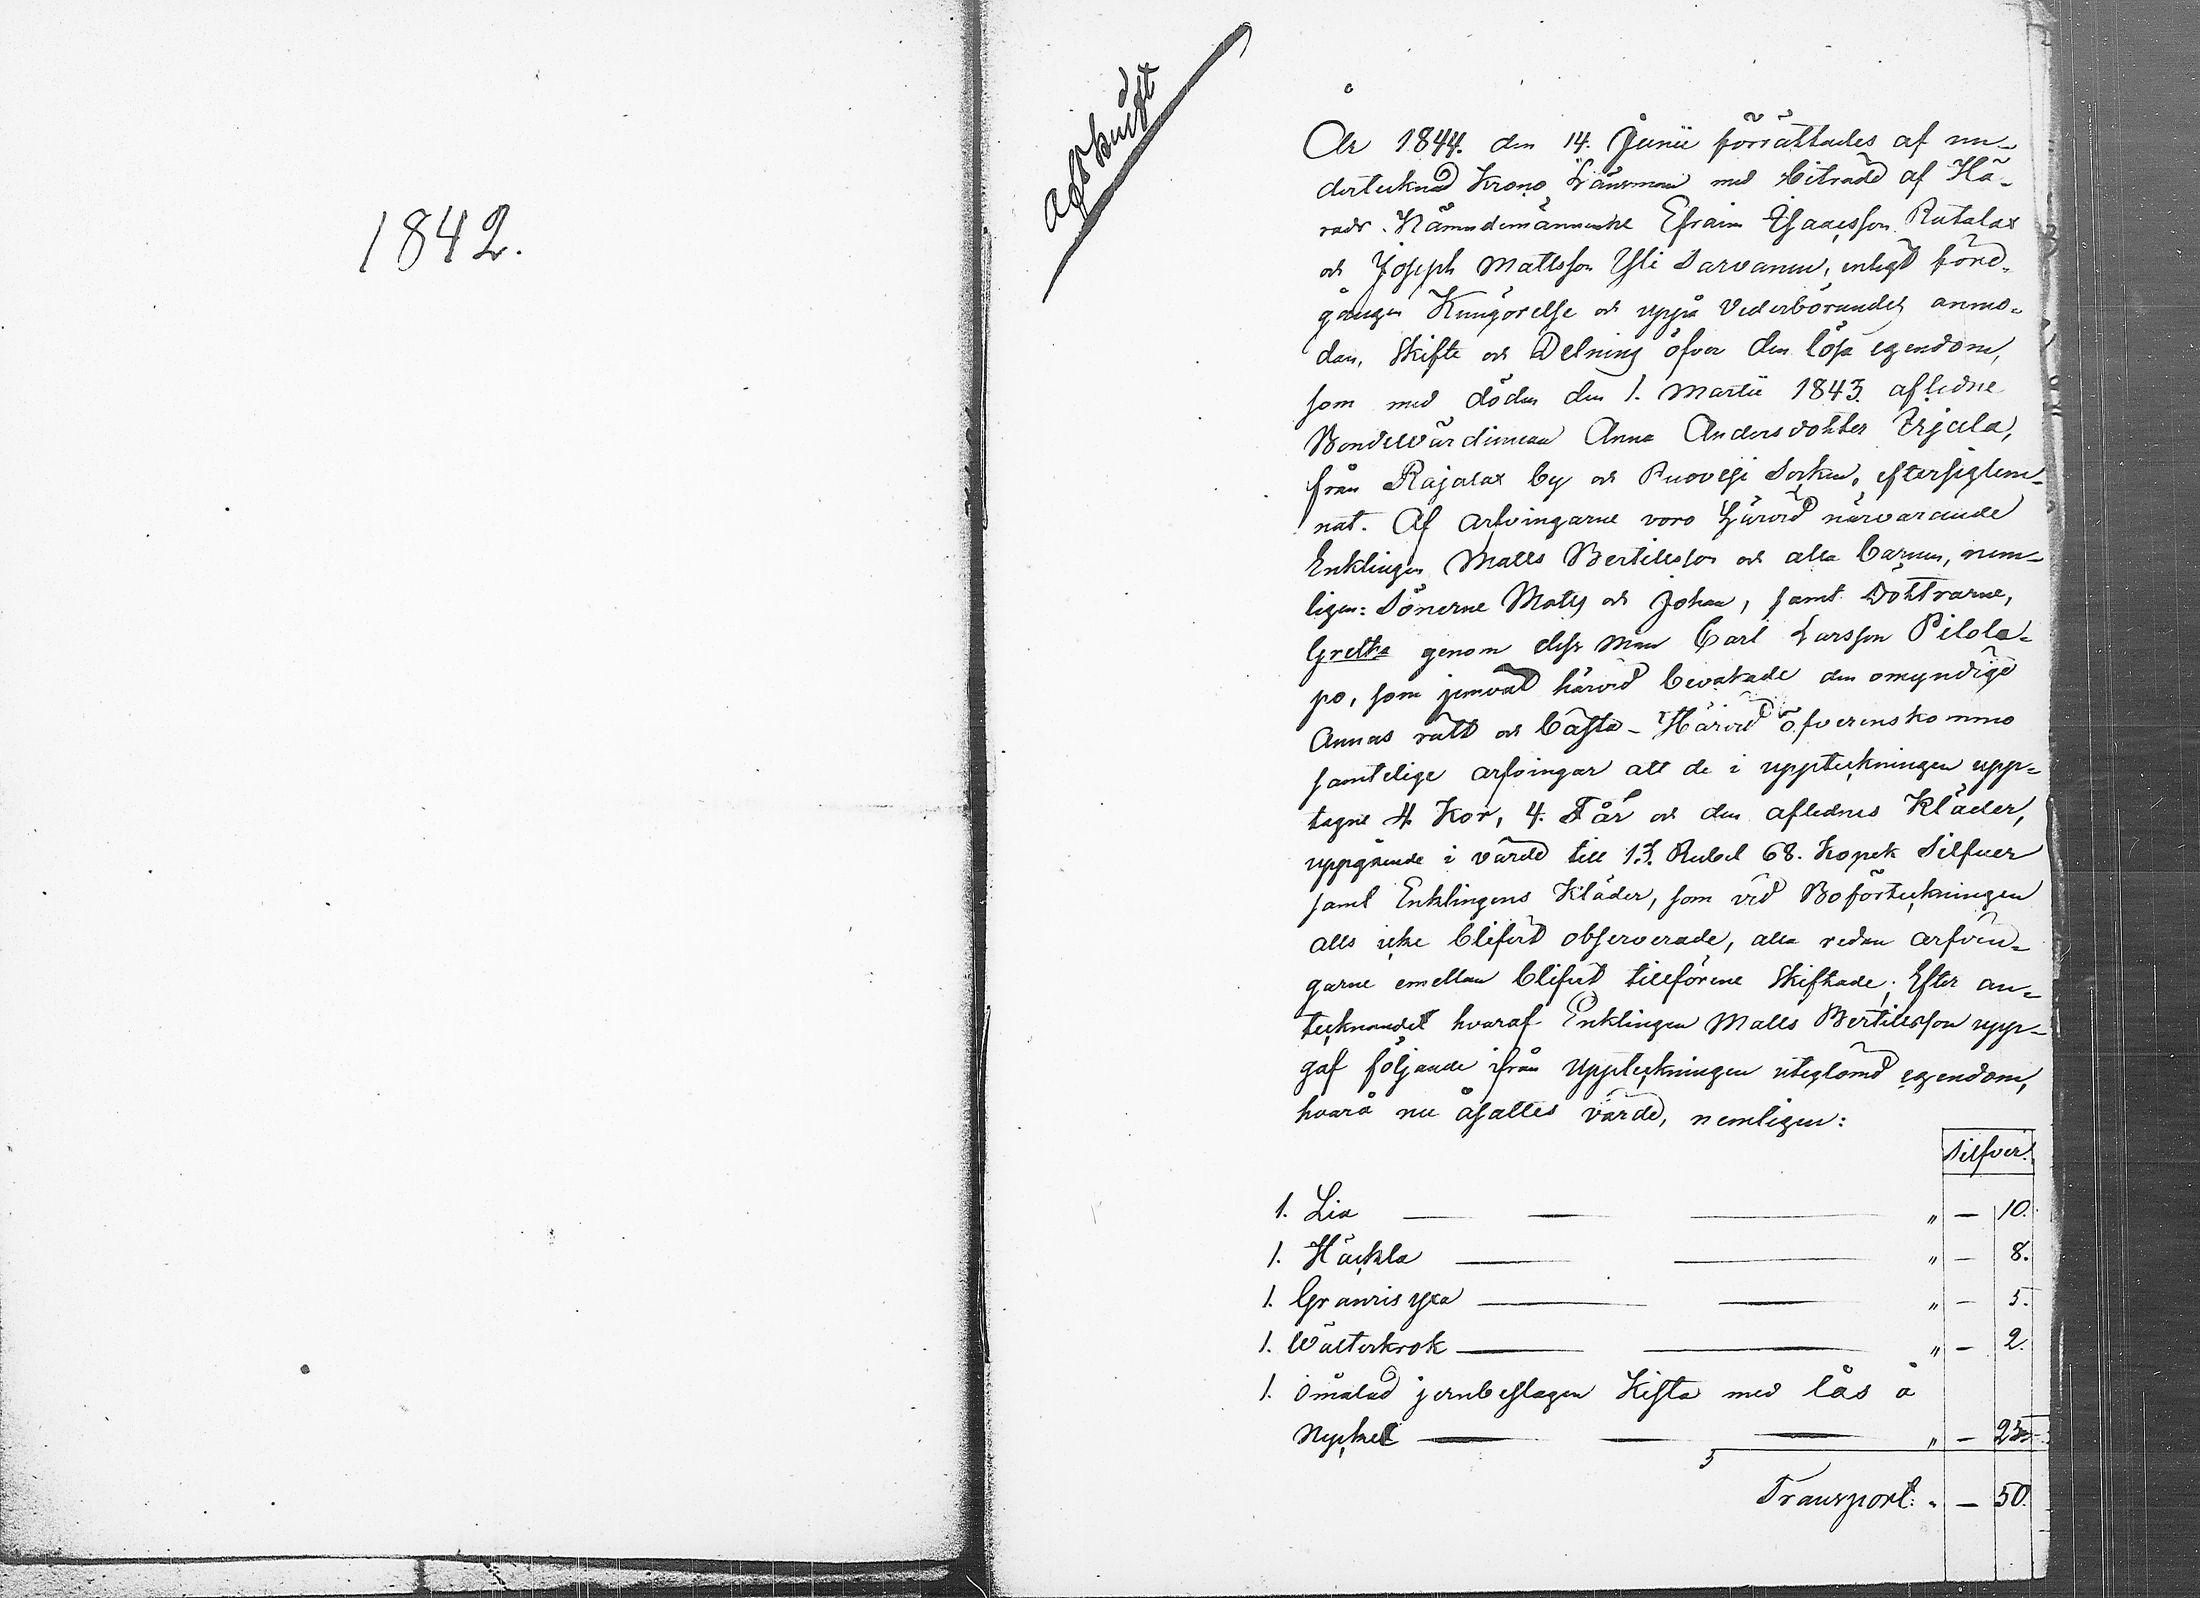 1842.
Afskrift
År 1844. den 14. Junii förrättades af un-
dertecknad Krono Länsman med biträde af Hä-
rads Nämndemännerne Efraim Isaacsson Rutalax
och Joseph Mattsson Yli Sarvanen, enligt före-
gången Kungörelse och uppå Vederbörandes anmo-
dan, Skifte och Delning öfver den lösa egendom,
som med döden den 1. Martii 1843. afledne
Bondevärdinnan Anna Andersdotter Erjala,
från Rajalax by och Ruovesi Socken, efterlem-
nat. Af arfvingarne voro härvid närvarande
Enklingen Matts Bertilsson och alla barnen, nem-
ligen: Sönerne Matts och Johan, samt Döttrarne,
Gretha genom dess Man Carl Larsson Pilola-
po, som jemväl härvid bevakade den omyndige
Annas rätt och bästa - Härvid öfverenskommo
samtelige arfvingar att de i uppteckningen upp-
tagne 4 Kor, 4. Får och den aflednes Kläder,
uppgående i värde till 17. Rubel 68. Kopek Silfver
samt Enklingens Kläder, som vid Boförteckningen
alls icke blifvit observerade, alla redan arfvin-
garne emellan blifvit tillförene Skiftade; Efter an-
tecknandet hvaraf Enklingen Matts Bertilsson upp-
gaf följande ifrån Uppteckningen uteglömd egendom,
hvarå nu åsattes värde, nemligen:
Silfver.
1. Lia " — 10.
1. Häckla " — 8.
1. Granris yxa " — 5.
1. Wälterkrok " — 2.
1. omålad jernbeslagen Kista med lås å
Nyckel " — 25
Transport: " — 50.